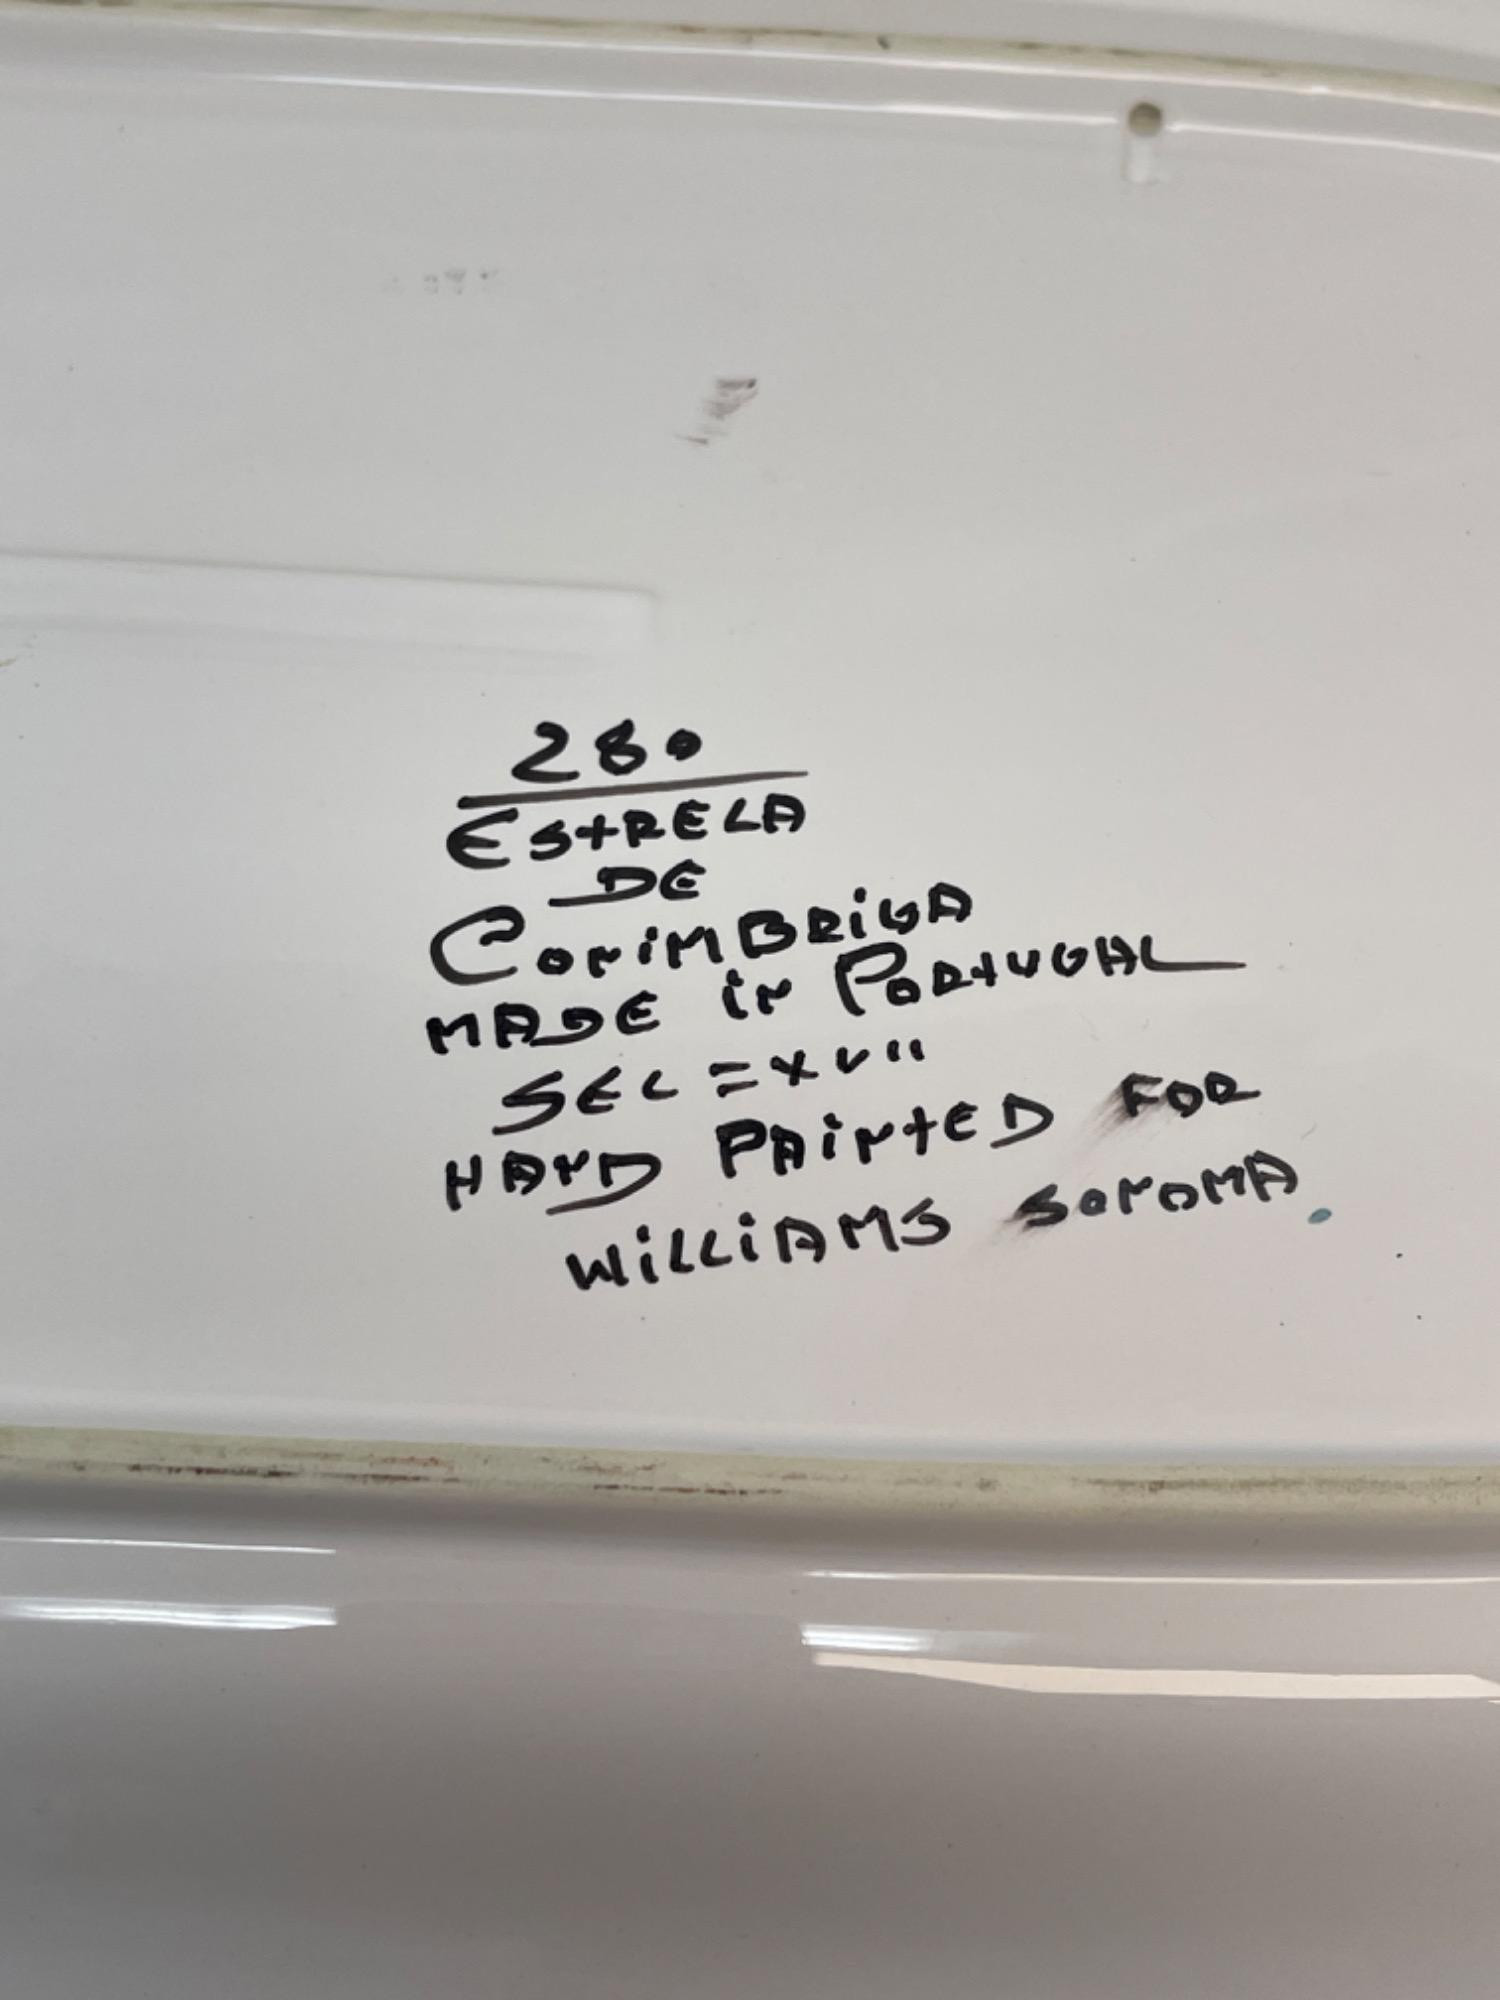 280
ESTRELA
DE
CONIMBRIGA
MADE IN PORTUGAL
SEC = XVII
HAND PAINTED FOR
WILLIAMS SONOMA.